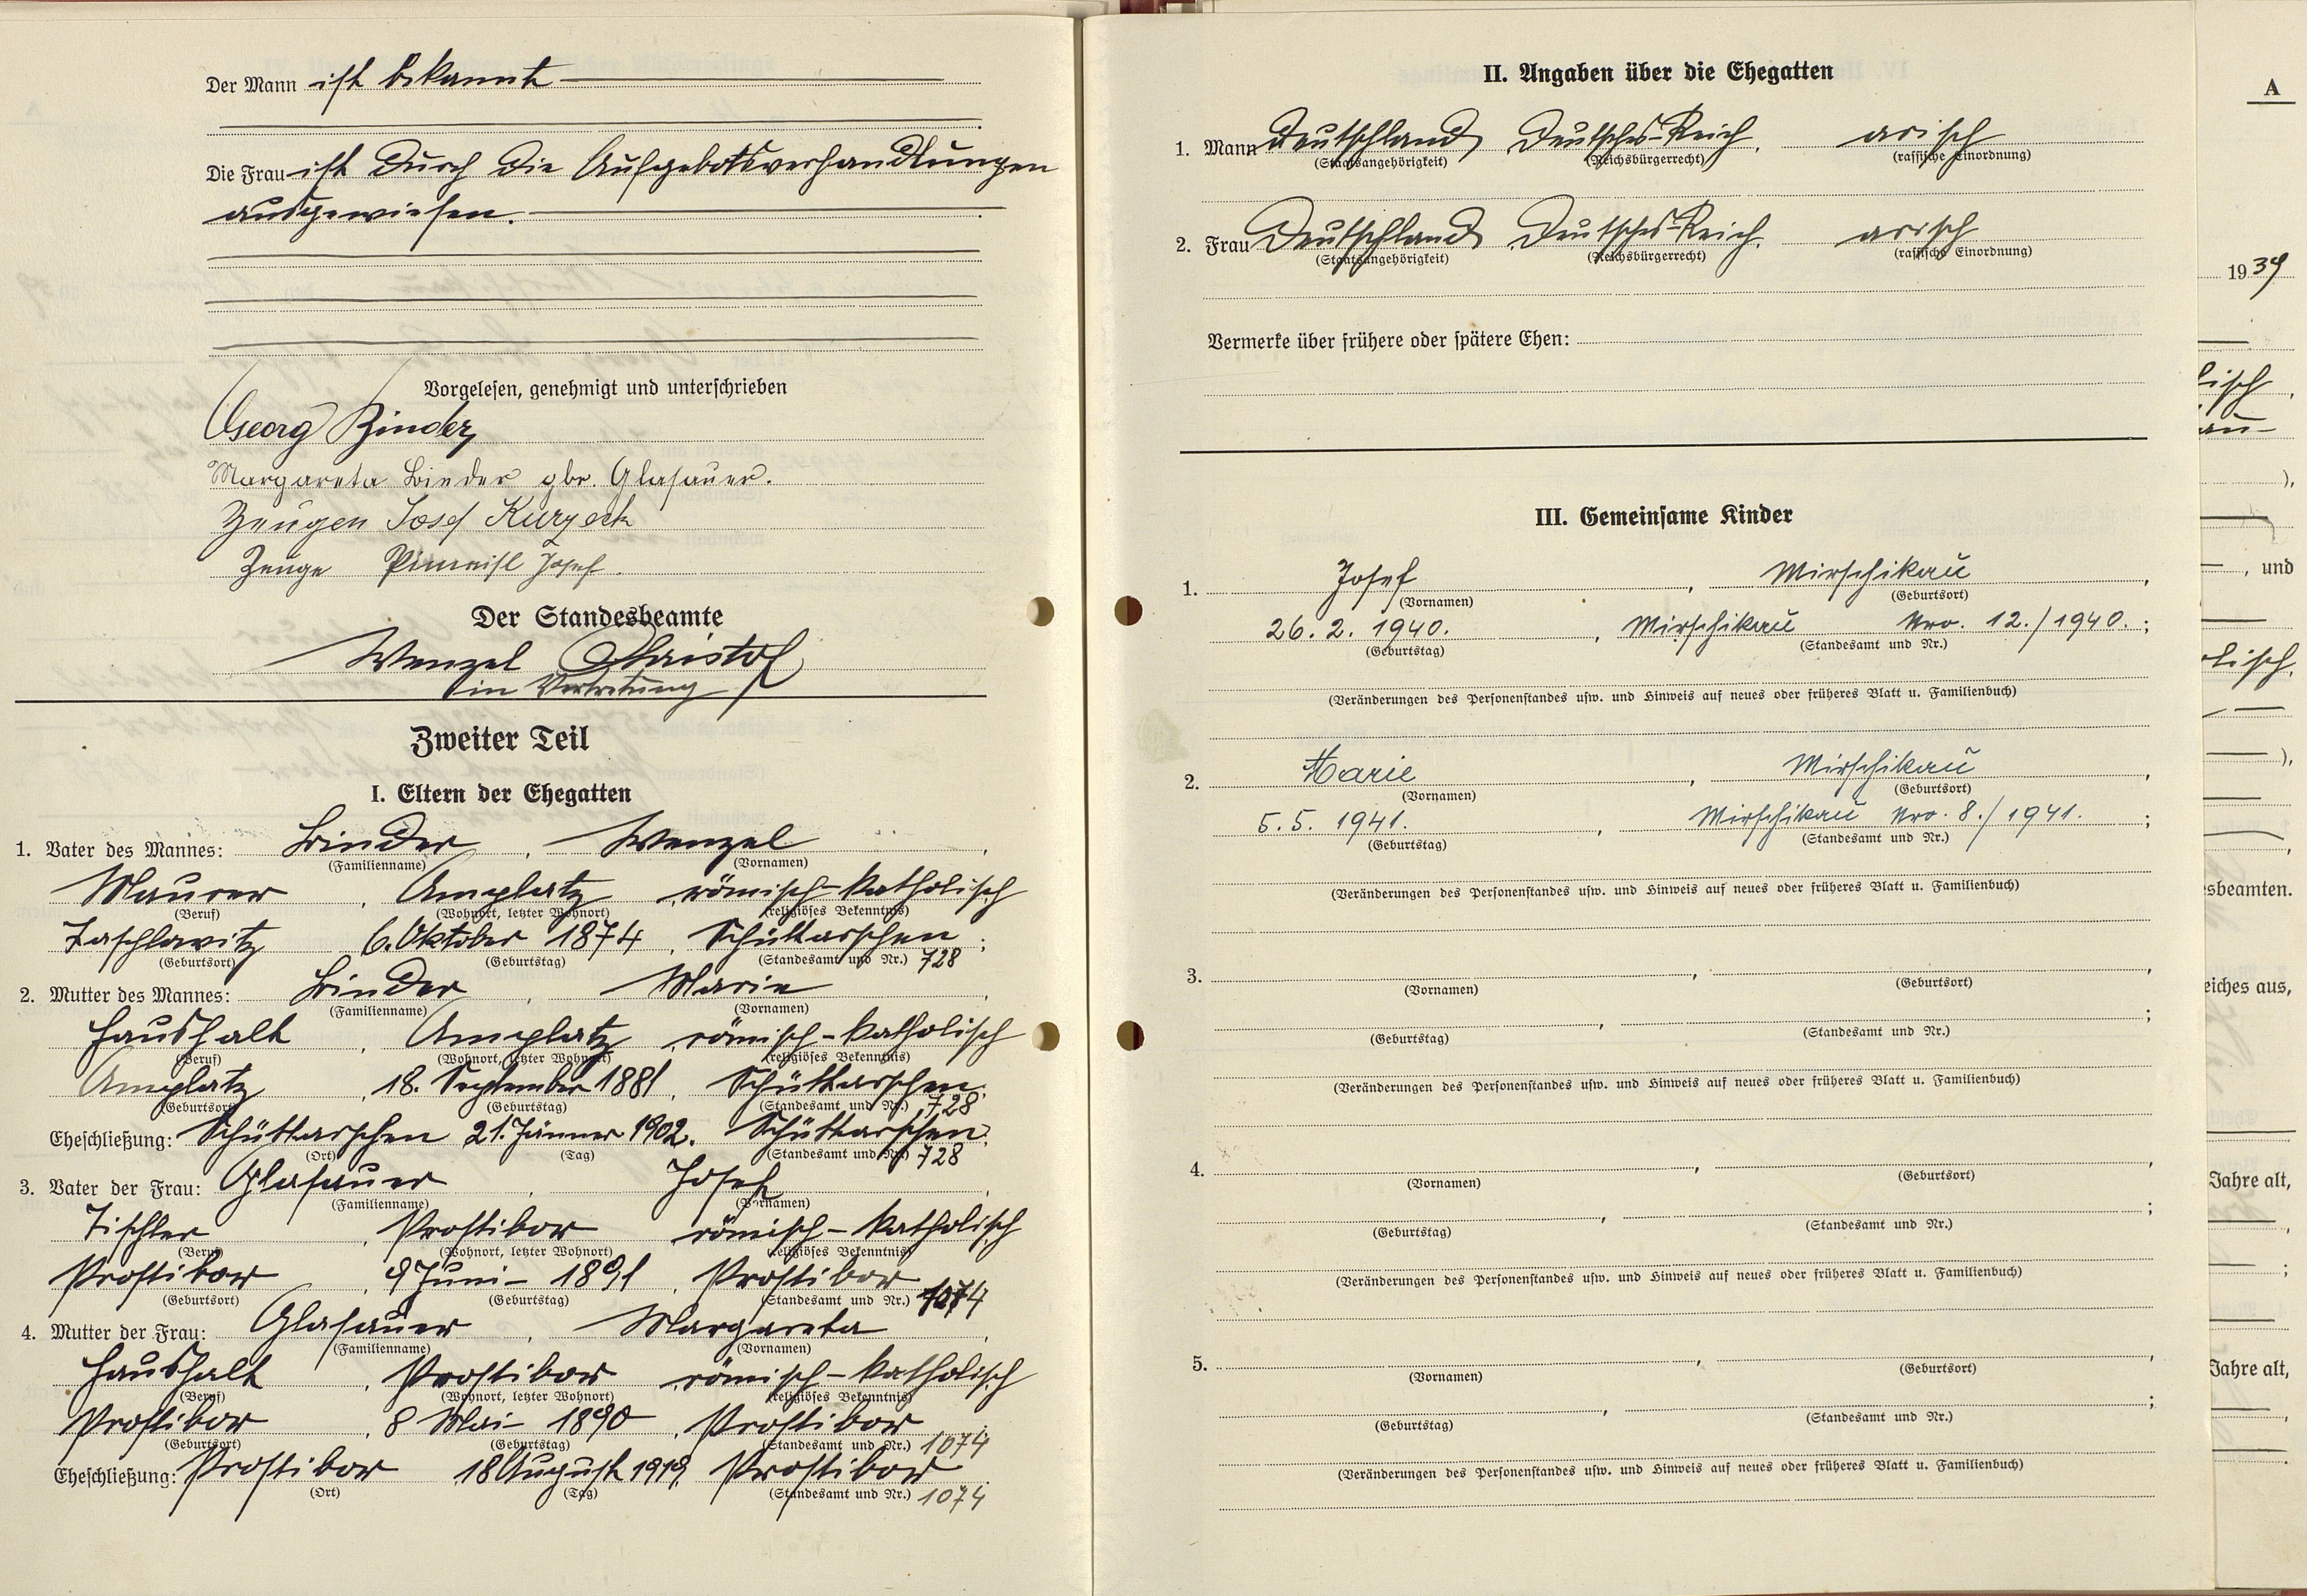 Der Mann ist bekannt
Die Frau ist durch die Aufgebotsverhandlungen
ausgewiesen.
Vorgelesen, genehmigt und unterschrieben
Georg Binder
Margareta Binder gbr. Glasauer.
Zeugen Josef Kurzeck
Zeuge Josef
Der Standesbeamte
Wenzel Christof
in Vertretung
Zweiter Teil
I. Eltern der Ehegatten
1. Vater des Mannes: Binder, Wenzel,
(Familienname) (Vornamen)
Maurer, Amplatz, römisch-katholisch
(Beruf) (Wohnort, letzter Wohnort) (religiöses Bekenntnis)
Taschlowitz 6. Oktober 1874, Schüttarschen;
(Geburtsort) (Geburtstag) (Standesamt und Nr.) 728
2. Mutter des Mannes: Binder, Marie,
(Familienname) (Vornamen)
Haushalt, Amplatz, römisch-katholisch
(Beruf) (Wohnort, letzter Wohnort) (religiöses Bekenntnis)
Amplatz, 18. September 1881, Schüttarschen;
(Geburtsort) (Geburtstag) (Standesamt und Nr.) 728
Eheschließung: Schüttarschen 21. Jänner 1902. Schüttarschen.
(Ort) (Tag) (Standesamt und Nr.) 728
3. Vater der Frau: Glasauer, Josef,
(Familienname) (Vornamen)
Tischler, Prostibor römisch-katholisch
(Beruf) (Wohnort, letzter Wohnort) (religiöses Bekenntnis)
Prostibor, 9 Juni - 1891, Prostibor
(Geburtsort) (Geburtstag) (Standesamt und Nr.) 1074
4. Mutter der Frau: Glasauer, Margareta,
(Familienname) (Vornamen)
Haushalt, Prostibor, römisch-katholisch
(Beruf) (Wohnort, letzter Wohnort) (religiöses Bekenntnis)
Prostibor, 8 Mai - 1890, Prostibor;
(Geburtsort) (Geburtstag) (Standesamt und Nr.) 1074
Eheschließung: Prostibor 18 August 1919, Prostibor.
(Ort) (Tag) (Standesamt und Nr.) 1074
II. Angaben über die Ehegatten
1. Mann Deutschland, Deutsches-Reich, arisch
(Staatsangehörigkeit) (Reichsbürgerrecht) (rassische Einordnung)
2. Frau Deutschland, Deutsches-Reich, arisch
(Staatsangehörigkeit) (Reichsbürgerrecht) (rassische Einordnung)
Vermerke über frühere oder spätere Ehen:
III. Gemeinsame Kinder
1. Josef, Mirschikau,
(Vornamen) (Geburtsort)
26. 2. 1940., Mirschikau Nro. 12./1940.;
(Geburtstag) (Standesamt und Nr.)
(Veränderungen des Personenstandes usw. und Hinweis auf neues oder früheres Blatt u. Familienbuch)
2. Marie, Mirschikau,
(Vornamen) (Geburtsort)
5. 5. 1941., Mirschikau Nro. 8./1941.;
(Geburtstag) (Standesamt und Nr.)
(Veränderungen des Personenstandes usw. und Hinweis auf neues oder früheres Blatt u. Familienbuch)
3. , ,
(Vornamen) (Geburtsort)
, ;
(Geburtstag) (Standesamt und Nr.)
(Veränderungen des Personenstandes usw. und Hinweis auf neues oder früheres Blatt u. Familienbuch)
4. , ,
(Vornamen) (Geburtsort)
, ;
(Geburtstag) (Standesamt und Nr.)
(Veränderungen des Personenstandes usw. und Hinweis auf neues oder früheres Blatt u. Familienbuch)
5. , ,
(Vornamen) (Geburtsort)
, ;
(Geburtstag) (Standesamt und Nr.)
(Veränderungen des Personenstandes usw. und Hinweis auf neues oder früheres Blatt u. Familienbuch)
A
1939
lisch,
au-
),
, und
olisch,
),
sbeamten.
eiches aus,
Jahre alt,
;
Jahre alt,